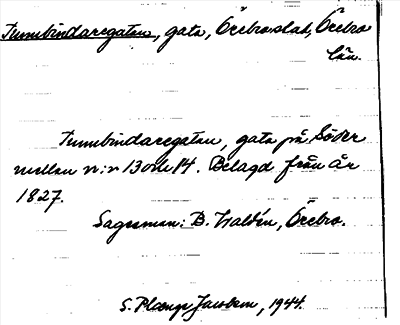 Tunnbindaregatan, gata, Örebro stad, Örebro
län.
Tunnbindaregatan, gata på Söder
mellan nr:r 13 och 14. Belagd från år
1827.
Sagesman: B. Waldén, Örebro.
S. Plænge Jacobson, 1944.